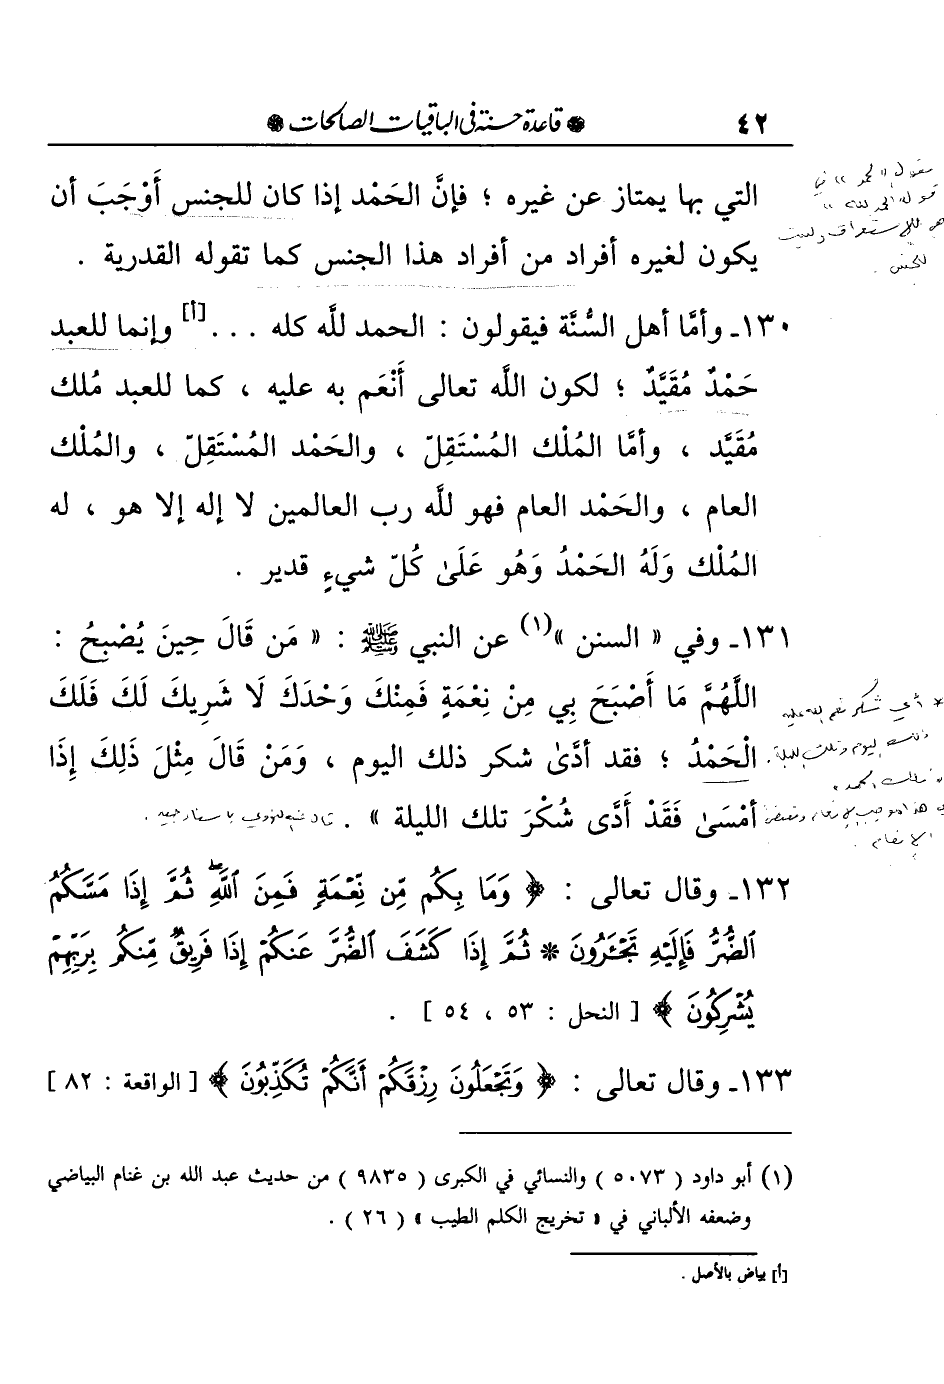 ٤٢
* قاعدة حسنة في الباقيات الصالحات *
التي بها يمتاز عن غيره ؛ فإنَّ الحَمْد إذا كان للجنس أَوْجَبَ أن
يكون لغيره أفراد من أفراد هذا الجنس كما تقوله القدرية .
١٣٠ـ وأمَّا أهل السُّنَّة فيقولون : الحمد للَّه كله . . .[أ] وإنما للعبد
حَمْدٌ مُقَيَّدٌ ؛ لكون اللَّه تعالى أَنْعَم به عليه ، كما للعبد مُلك
مُقَيَّد ، وأمَّا المُلْك المُسْتَقِلّ ، والحَمْد المُسْتَقِلّ ، والمُلْك
العام ، والحَمْد العام فهو للَّه رب العالمين لا إله إلا هو ، له
المُلْك وَلَهُ الحَمْدُ وَهُو عَلَىٰ كُلّ شيءٍ قدير .
١٣١ـ وفي « السنن »(١) عن النبي ﷺ : « مَن قَالَ حِينَ يُصْبِحُ :
اللَّهُمَّ مَا أَصْبَحَ بِي مِنْ نِعْمَةٍ فَمِنْكَ وَحْدَكَ لَا شَرِيكَ لَكَ فَلَكَ
الْحَمْدُ ؛ فقد أدَّىٰ شكر ذلك اليوم ، وَمَنْ قَالَ مِثْلَ ذَلِكَ إِذَا
أمْسَىٰ فَقَدْ أَدَّى شُكْرَ تلك الليلة » .
١٣٢ـ وقال تعالى : ﴿ وَمَا بِكُم مِّن نِّعْمَةٍ فَمِنَ ٱللَّهِ ۖ ثُمَّ إِذَا مَسَّكُمُ
ٱلضُّرُّ فَإِلَيْهِ تَجْـَٔرُونَ * ثُمَّ إِذَا كَشَفَ ٱلضُّرَّ عَنكُمْ إِذَا فَرِيقٌ مِّنكُم بِرَبِّهِمْ
يُشْرِكُونَ ﴾ [ النحل : ٥٣ ، ٥٤ ] .
١٣٣ـ وقال تعالى : ﴿ وَتَجْعَلُونَ رِزْقَكُمْ أَنَّكُمْ تُكَذِّبُونَ ﴾ [ الواقعة : ٨٢ ]
(١) أبو داود ( ٥٠٧٣ ) والنسائي في الكبرى ( ٩٨٣٥ ) من حديث عبد الله بن غنام البياضي
وضعفه الألباني في « تخريج الكلم الطيب » ( ٢٦ ) .
[أ] بياض بالأصل .
في
قوله الحمد لله
هو للاستغراق وليست
للجنس .
* أي شكر نعم الله عليه
ذلك اليوم وتلك الليلة .
الإنعام .